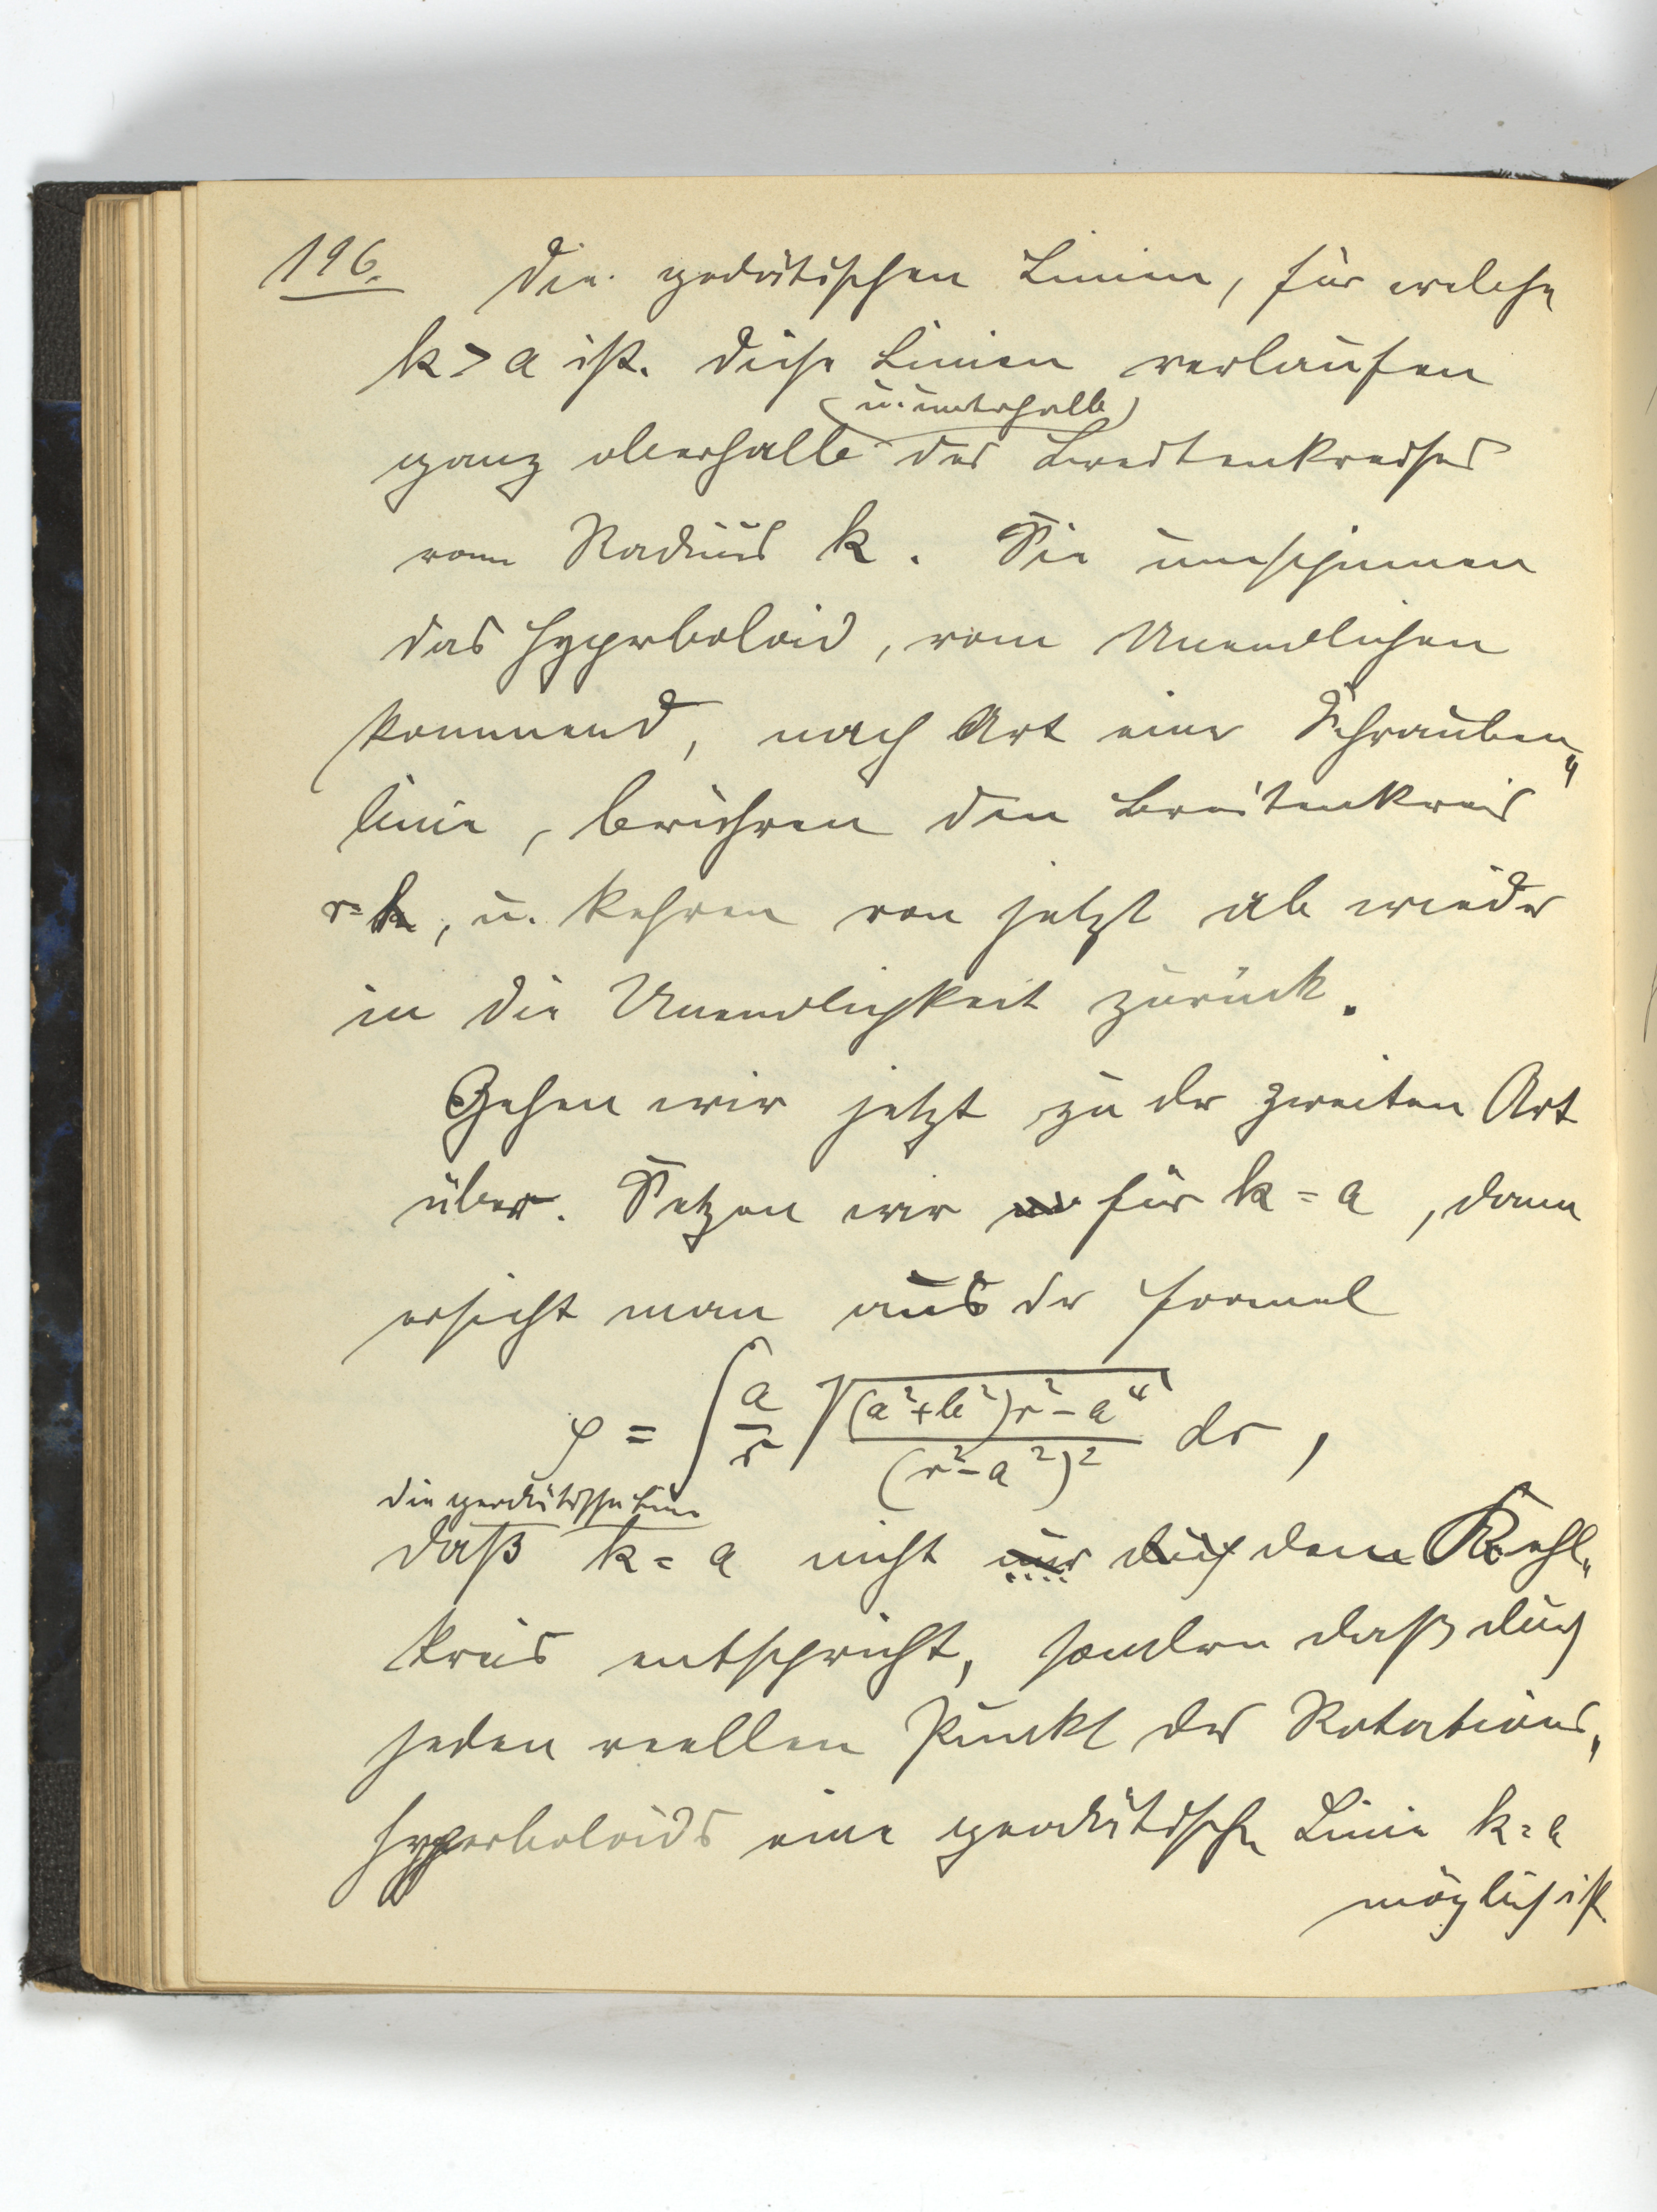 196. Die geodätischen Linien, für welche
k > a ist. Diese Linien verlaufen
(u. unterhalb)
ganz oberhalb des Breitenkreises
vom Radius k. Sie umspinnen
das Hyperboloid, vom Unendlichen
kommend, nach Art einer Schrauben„
linie, berühren den Breitenkreis
r = k, u. kehren von jetzt ab wieder
in die Unendlichkeit zurück.
Gehen wir jetzt zu der zweiten Art
über. Setzen wir für k = a, dann
ersieht man aus der Formel
φ = ∫ a/r √((a²+b²)r² - a⁴)/(r²-a²)² dr,
die geodätische Linie
daß k = a nicht nur dem Kehl„
kreis entspricht, sondern daß durch
jeden reellen Punkt des Rotations„
hyperboloids eine geodätische Linie k = a
möglich ist